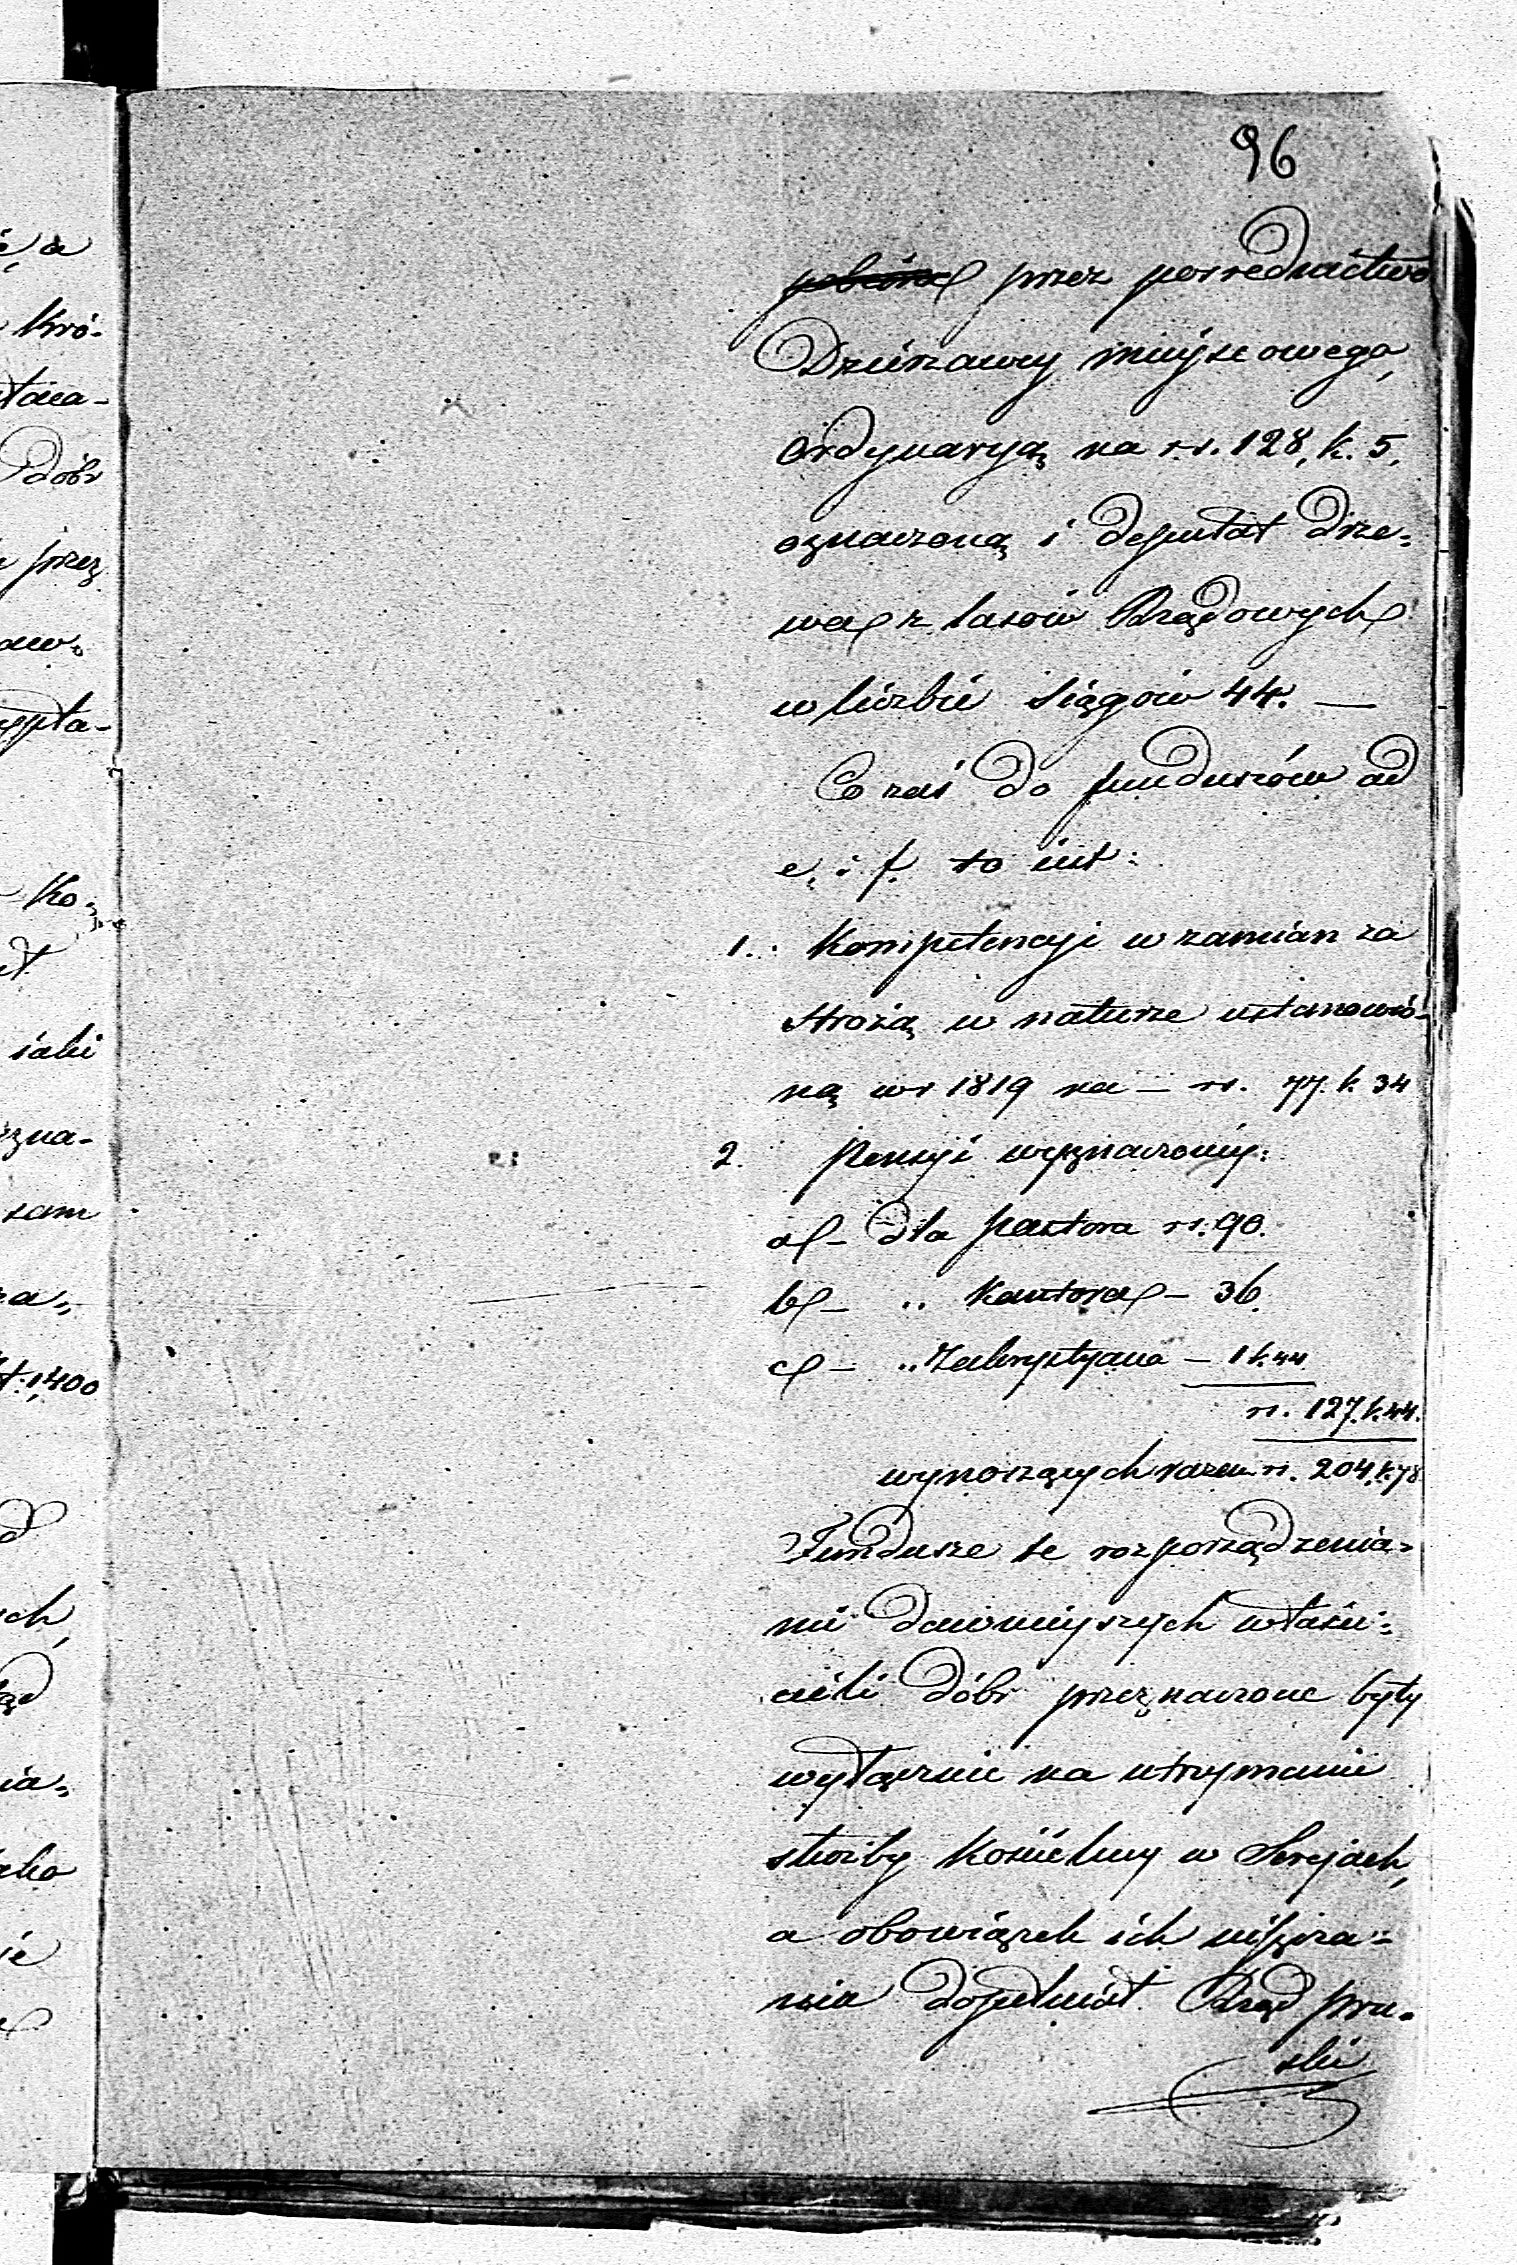 96
pobiéra przez posrednictwo
Dzierżawcy mieyscowego,
Ordynaryą na rs. 128, k. 5,
oznaczoną i deputat drze-
wa z lasów Rządowych
w liczbie siągów 44. —
Co zaś do funduszów ad
e, i f. to iest:
1. Kompetencyi w zamian za
strożą w naturze ustanowio-
ną w r 1819 na — rs. 77. k. 34
2. Pensyi wyznaczoney:
a/- dla Pastora rs. 90.
b/- „ Kantora - 36.
c/- „ Zakrystyana - 1 k. 44
rs. 127. k. 44.
wynoszących razem rs. 204, k. 78
Fundusze te rozporządzenia-
mi dawnieyszych właści-
cieli dóbr przeznaczone były
wyłącznie na utrzymanie
służby Kościelney w Serejach,
a obowiązek ich uiszcza-
nia dopełniał Rząd pru-
ski
é, a
Kró-
dóbr
przez
aw-
Ko-
iaki
zna-
sam
1,400
ych,
ako